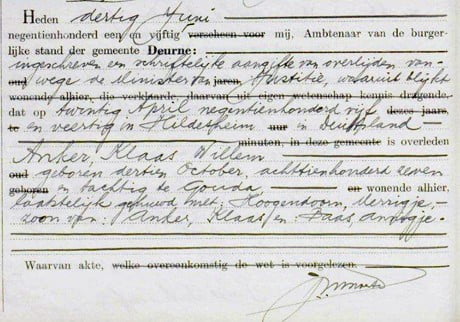 Heden dertig Juni
negentienhonderd een en vijftig verscheen voor mij. Ambtenaar van de burger-
lijke stand der gemeente Deurne:
ingeschreven een schriftelijke aangifte van overlijden van-
oud wege de Minister van jaren, Justitie, waaruit blijkt
wonende alhier, die verklaarde, daarvan uit eigen wetenschap kennis dragende,
dat op twintig April negentienhonderd vijf dezes jaars,
te en veertig in Hildesheim uur in Duitsland
minuten, in deze gemeente is overleden
Anker, Klaas Willem
oud geboren dertien October, achttienhonderd zeven
geboren en tachtig te Gouda, en wonende alhier,
laatstelijk gehuwd met: Hoogendoorn, Merrigje,-
zoon van: Anker, Klaas, en Baas, Annigje.
Waarvan akte, welke overeenkomstig de wet is voorgelezen.